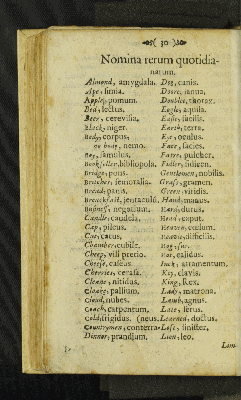 ( 30 )
Nomina rerum quotidia-
narum.
Almond, amygdala.
Ape, simia.
Apple, pomum.
Bed, lectus.
Beer, cerevisia.
Black, niger.
Body, corpus,
no body, nemo.
Boy, famulus.
Bookseller, bibliopola.
Bridge, pons.
Breeches, femoralia.
Bread, panis.
Breakfast, jentaculū.
Busines, negotium.
Candle, candela.
Cap, pileus.
Cat, catus.
Chamber, cubile.
Cheap, vili pretio.
Cheese, caseus.
Cherries, cerasa.
Cleane, nitidus.
Cloake, pallium.
Cloud, nubes.
Coach, carpentum.
Cold, frigidus. (neus.
Countrymen, conterra-
Dinner, prandium.
Dog, canis.
Doore, janua.
Doublet, thorax.
Eagle, aquila.
Easie, facilis.
Earth, terra.
Eye, oculus.
Face, facies.
Faire, pulcher.
Fidler, fidicen.
Gentlemen, nobilis.
Grass, gramen.
Green, viridis.
Hand, manus.
Hard, durus.
Head, caput.
Heaven, cœlum.
difficilis.
Hog, sus.
calidus.
Inck, atramentum.
Key, clavis.
King, Rex.
Lady, matrona.
Lamb, agnus.
Late, serus.
Learned, doctus.
Left, sinister.
Lion, leo.